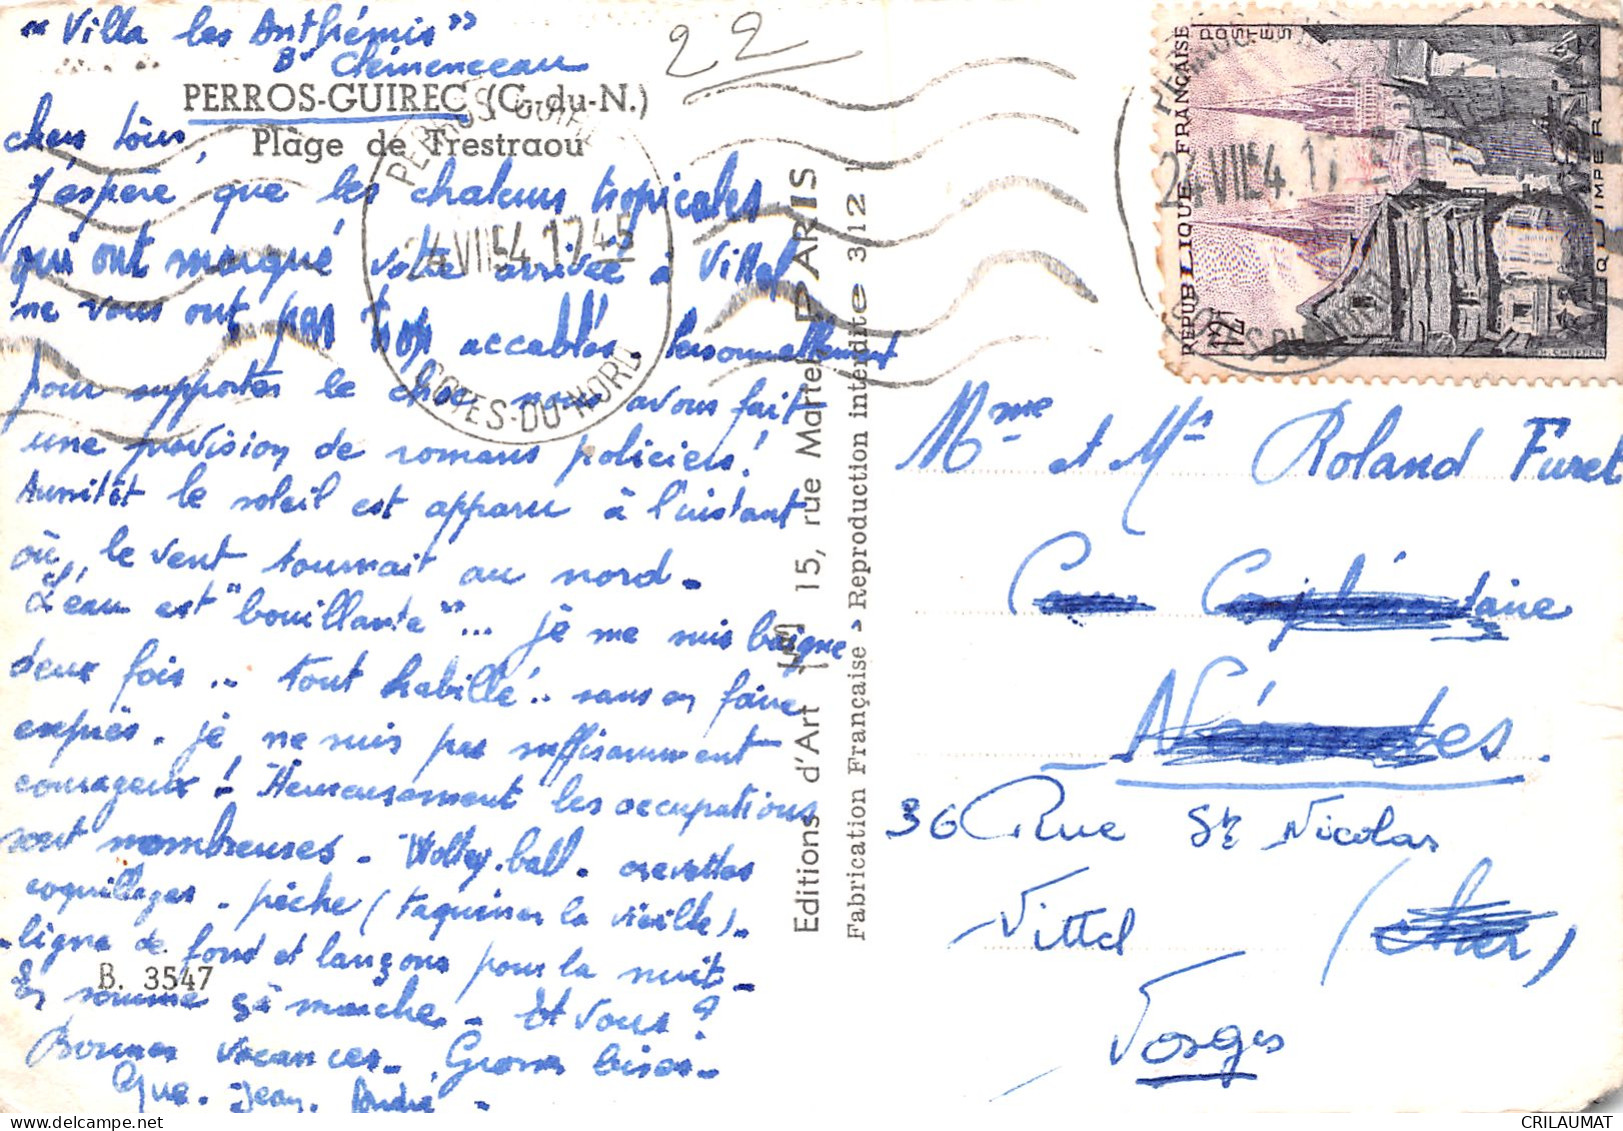 "Villa les Anthémis"
Bd Clémenceau
22
PERROS-GUIREC (C.-du-N.)
Plàge de Trestraou
chers tous,
J'espère que les chaleurs tropicales
qui ont marqué votre arrivée à Vittel
ne vous ont pas trop accablés. Personnellement
pour supporter le choc nous avons fait
une provision de romans policiers!
Aussitôt le soleil est apparu à l'instant
où le vent tournait au nord.
L'eau est "bouillante"... je me suis baigné
deux fois... tout habillé.. sans en faire
exprès. je ne suis pas suffisamment
courageux! Heureusement les occupations
sont nombreuses. Wolley-ball. crevettes
coquillages. pêche (taquiner la vieille).
ligne de fond et lançons pour la nuit.
B. 3547
En somme ça marche. Et vous?
Bonnes vacances. Grosses bises.
Jean. André.
PERROS GUIREC
24 VII 54 1745
COTES-DU-NORD
Editions d'Art 15, rue Martel PARIS
Fabrication Française - Reproduction interdite 312
REPUBLIQUE FRANÇAISE
POSTES
12F
QUIMPER
24 VII 54 17
COTES-DU-NORD
Mme et Mr Roland Furet
Cours Complémentaire
Nérondes.
36 Rue St Nicolas
Vittel (Cher)
Vosges
CRILAUMAT